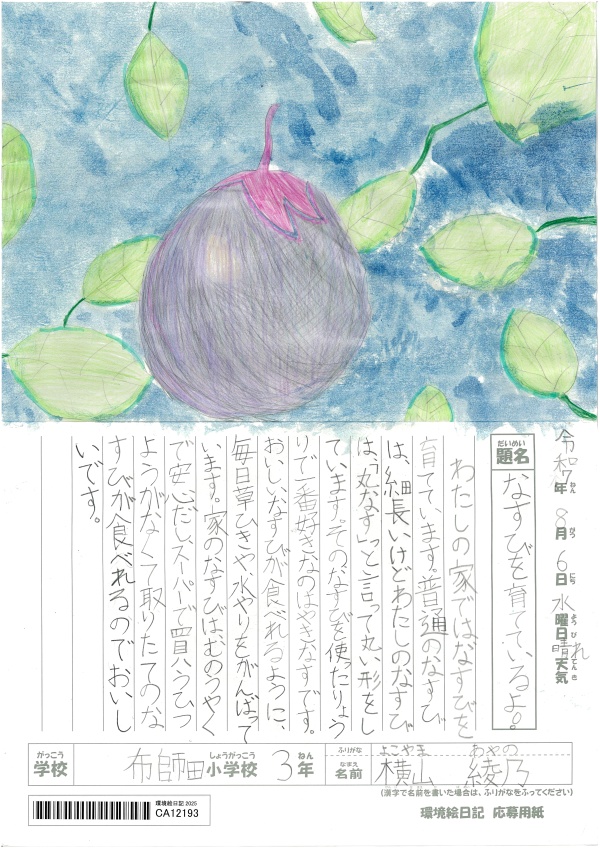 令和7年 8月 6日 水曜日 晴れ天気
ねん がつ にち ようび てんき
だいめい
題名 なすびを育てているよ。
わたしの家ではなすびを
育てています。普通のなすび
は、細長いけどわたしのなすび
は、「丸なす」っと言って丸い形をし
ています。そのなすびを使ったりょう
りで一番好きなのはやきなすです。
おいしいなすびが食べれるように、
毎日草ひきや水やりをがんばって
います。家のなすびはむのうやく
で安心だし、スーパーで買うひつ
ようがなくて取りたてのな
すびが食べれるのでおいし
いです。
がっこう しょうがっこう ねん ふりがな よこやま あやの
学校 布師田小学校 3年 なまえ 名前 横山 綾乃
(漢字で名前を書いた場合は、ふりがなをふってください)
環境絵日記 2025
CA12193
環境絵日記 応募用紙